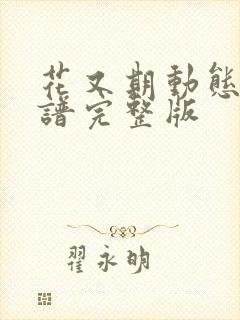 花又期動態
譜完整版
翟永明